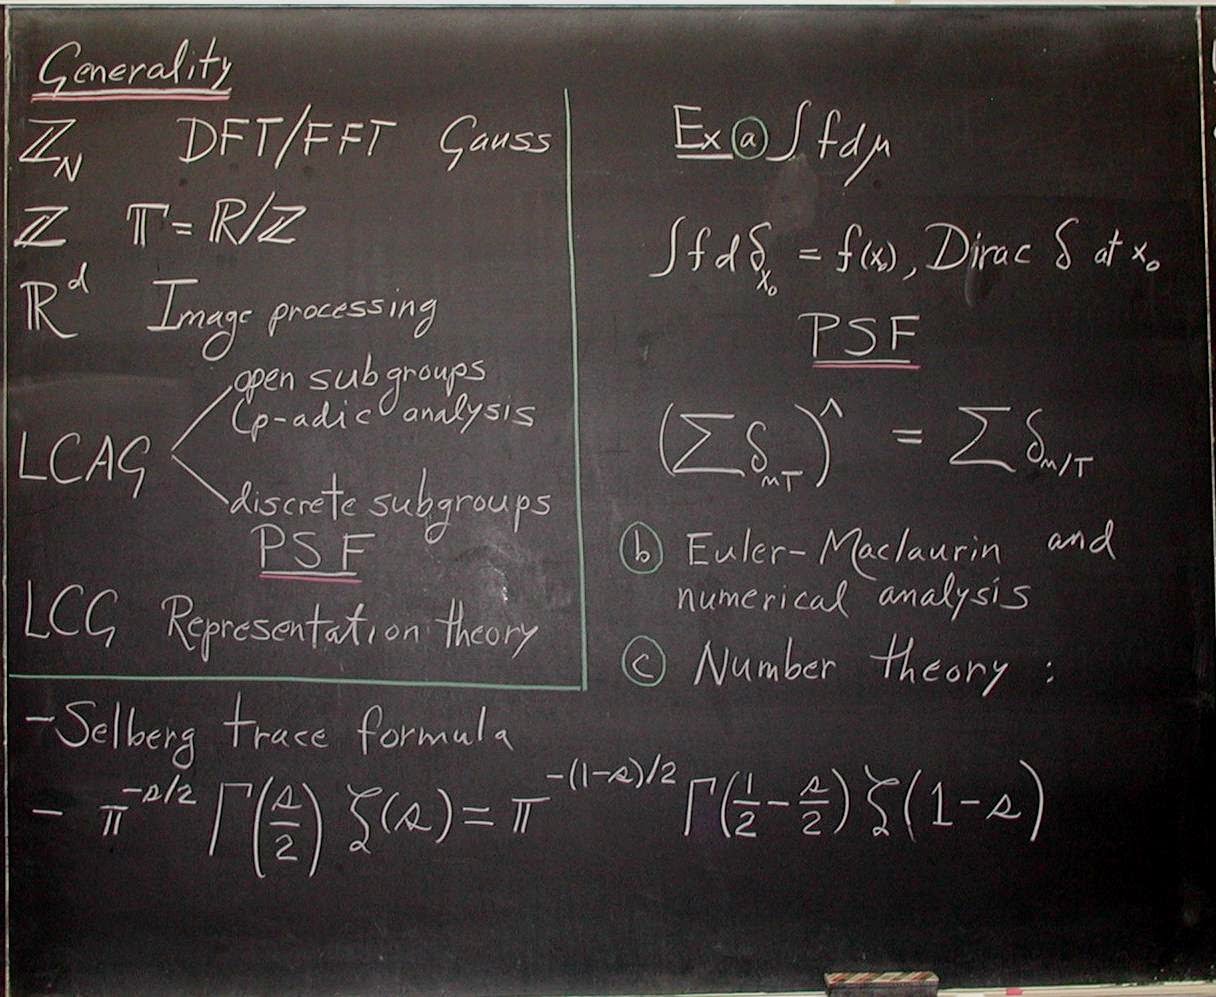 Generality
ℤ_N DFT/FFT Gauss
ℤ 𝕋 = ℝ/ℤ
ℝ^d Image processing
open subgroups
(p-adic analysis
LCAG
discrete subgroups
PSF
LCG Representation theory
Ex (a) ∫ f dμ
∫ f d δ_{x₀} = f(x₀), Dirac δ at x₀
PSF
(∑ δ_{mT})^ = ∑ δ_{m/T}
(b) Euler-Maclaurin and
numerical analysis
(c) Number theory :
- Selberg trace formula
- π^{-s/2} Γ(s/2) ζ(s) = π^{-(1-s)/2} Γ(1/2 - s/2) ζ(1-s)